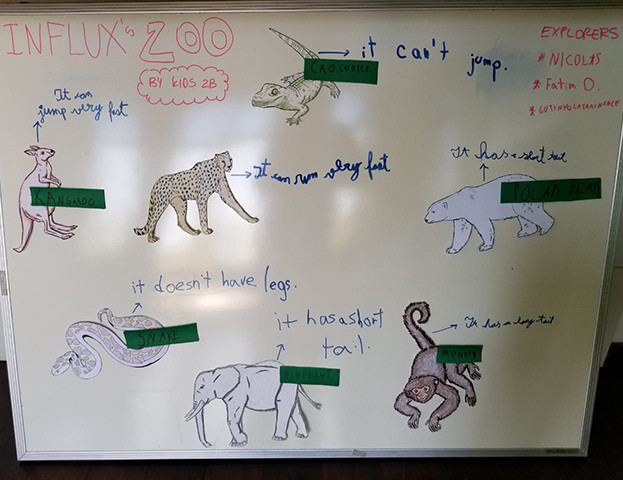 INFLUX's ZOO
BY KIDS 2B
EXPLORERS
* NICOLAS
* Fatim O.
CROCODILE
it can't jump.
It can
jump very fast
KANGAROO
It can run very fast
It has a short tail
POLAR BEAR
it doesn't have legs.
SNAKE
it has a short
tail.
ELEPHANT
It has a long tail
MONKEY